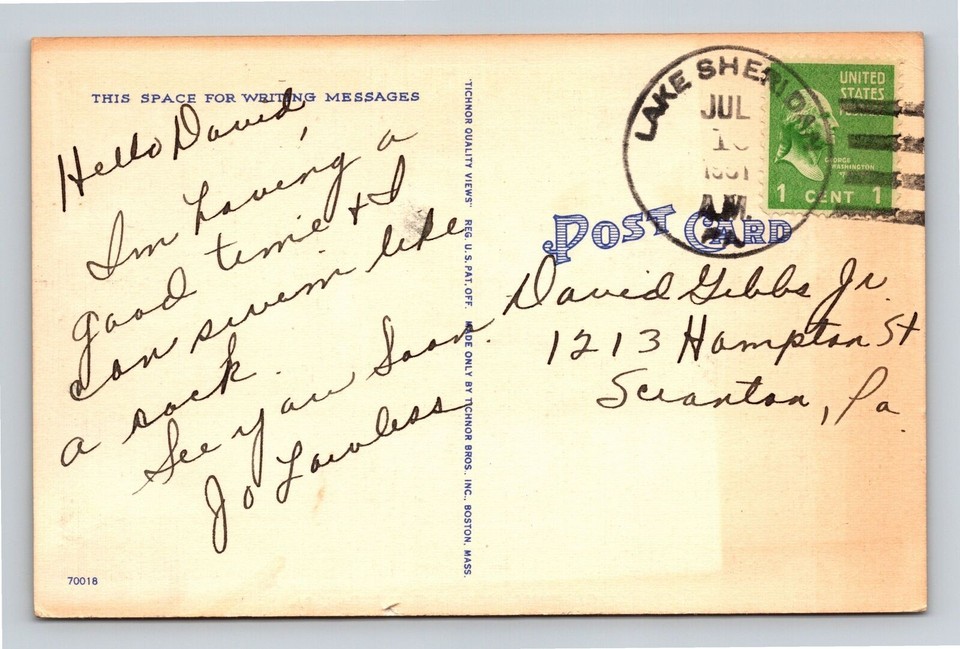 THIS SPACE FOR WRITING MESSAGES
Hello David,
Im having a
good time & I
can swim like
a rock.
See you Soon.
Jo Lawless
70018
"TICHNOR QUALITY VIEWS" REG. U. S. PAT. OFF. MADE ONLY BY TICHNOR BROS., INC., BOSTON, MASS.
POST CARD
LAKE SHERIDAN
JUL
1951
A.M.
PA.
UNITED
STATES
GEORGE
WASHINGTON
1 CENT 1
David Gibbs Jr.
1213 Hampton St
Scranton, Pa.